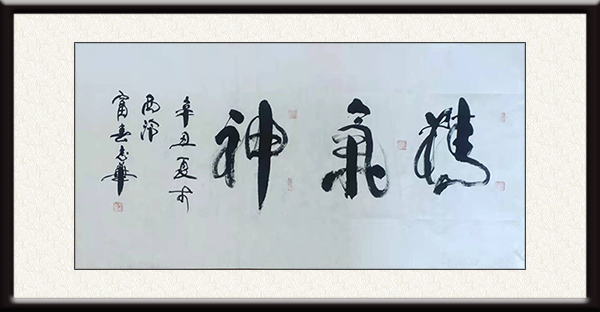 精氣神
辛丑夏于
西泠
富春志華